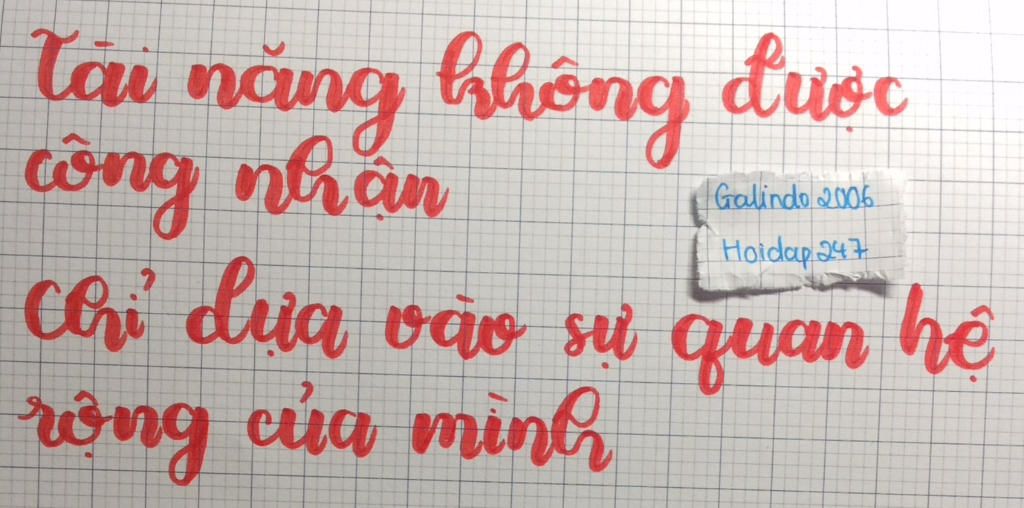 Tài năng không được
công nhận
Galindo 2006
Hoidap 247
Chỉ dựa vào sự quan hệ
rộng của mình